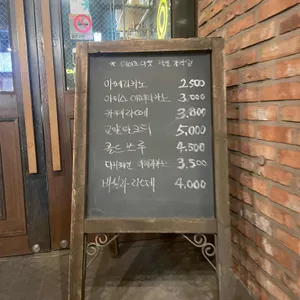 아메리카노 2.500
아이스 아메리카노 3.000
카페라떼 3.800
5.000
콜드브루 4.500
디카페인 아메리카노 3.500
바닐라라떼 4.000